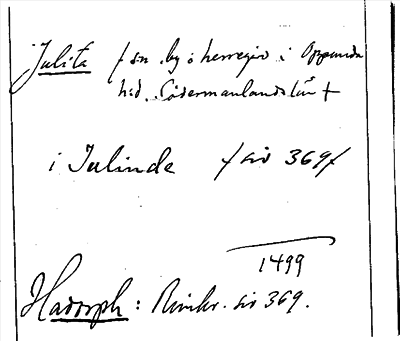 Julita f sn. by o herregår i Oppunda
hd. Södermanlands län +
i Julinde f sid 369 f
1499
Hadorph: Rimkr. sid 369.